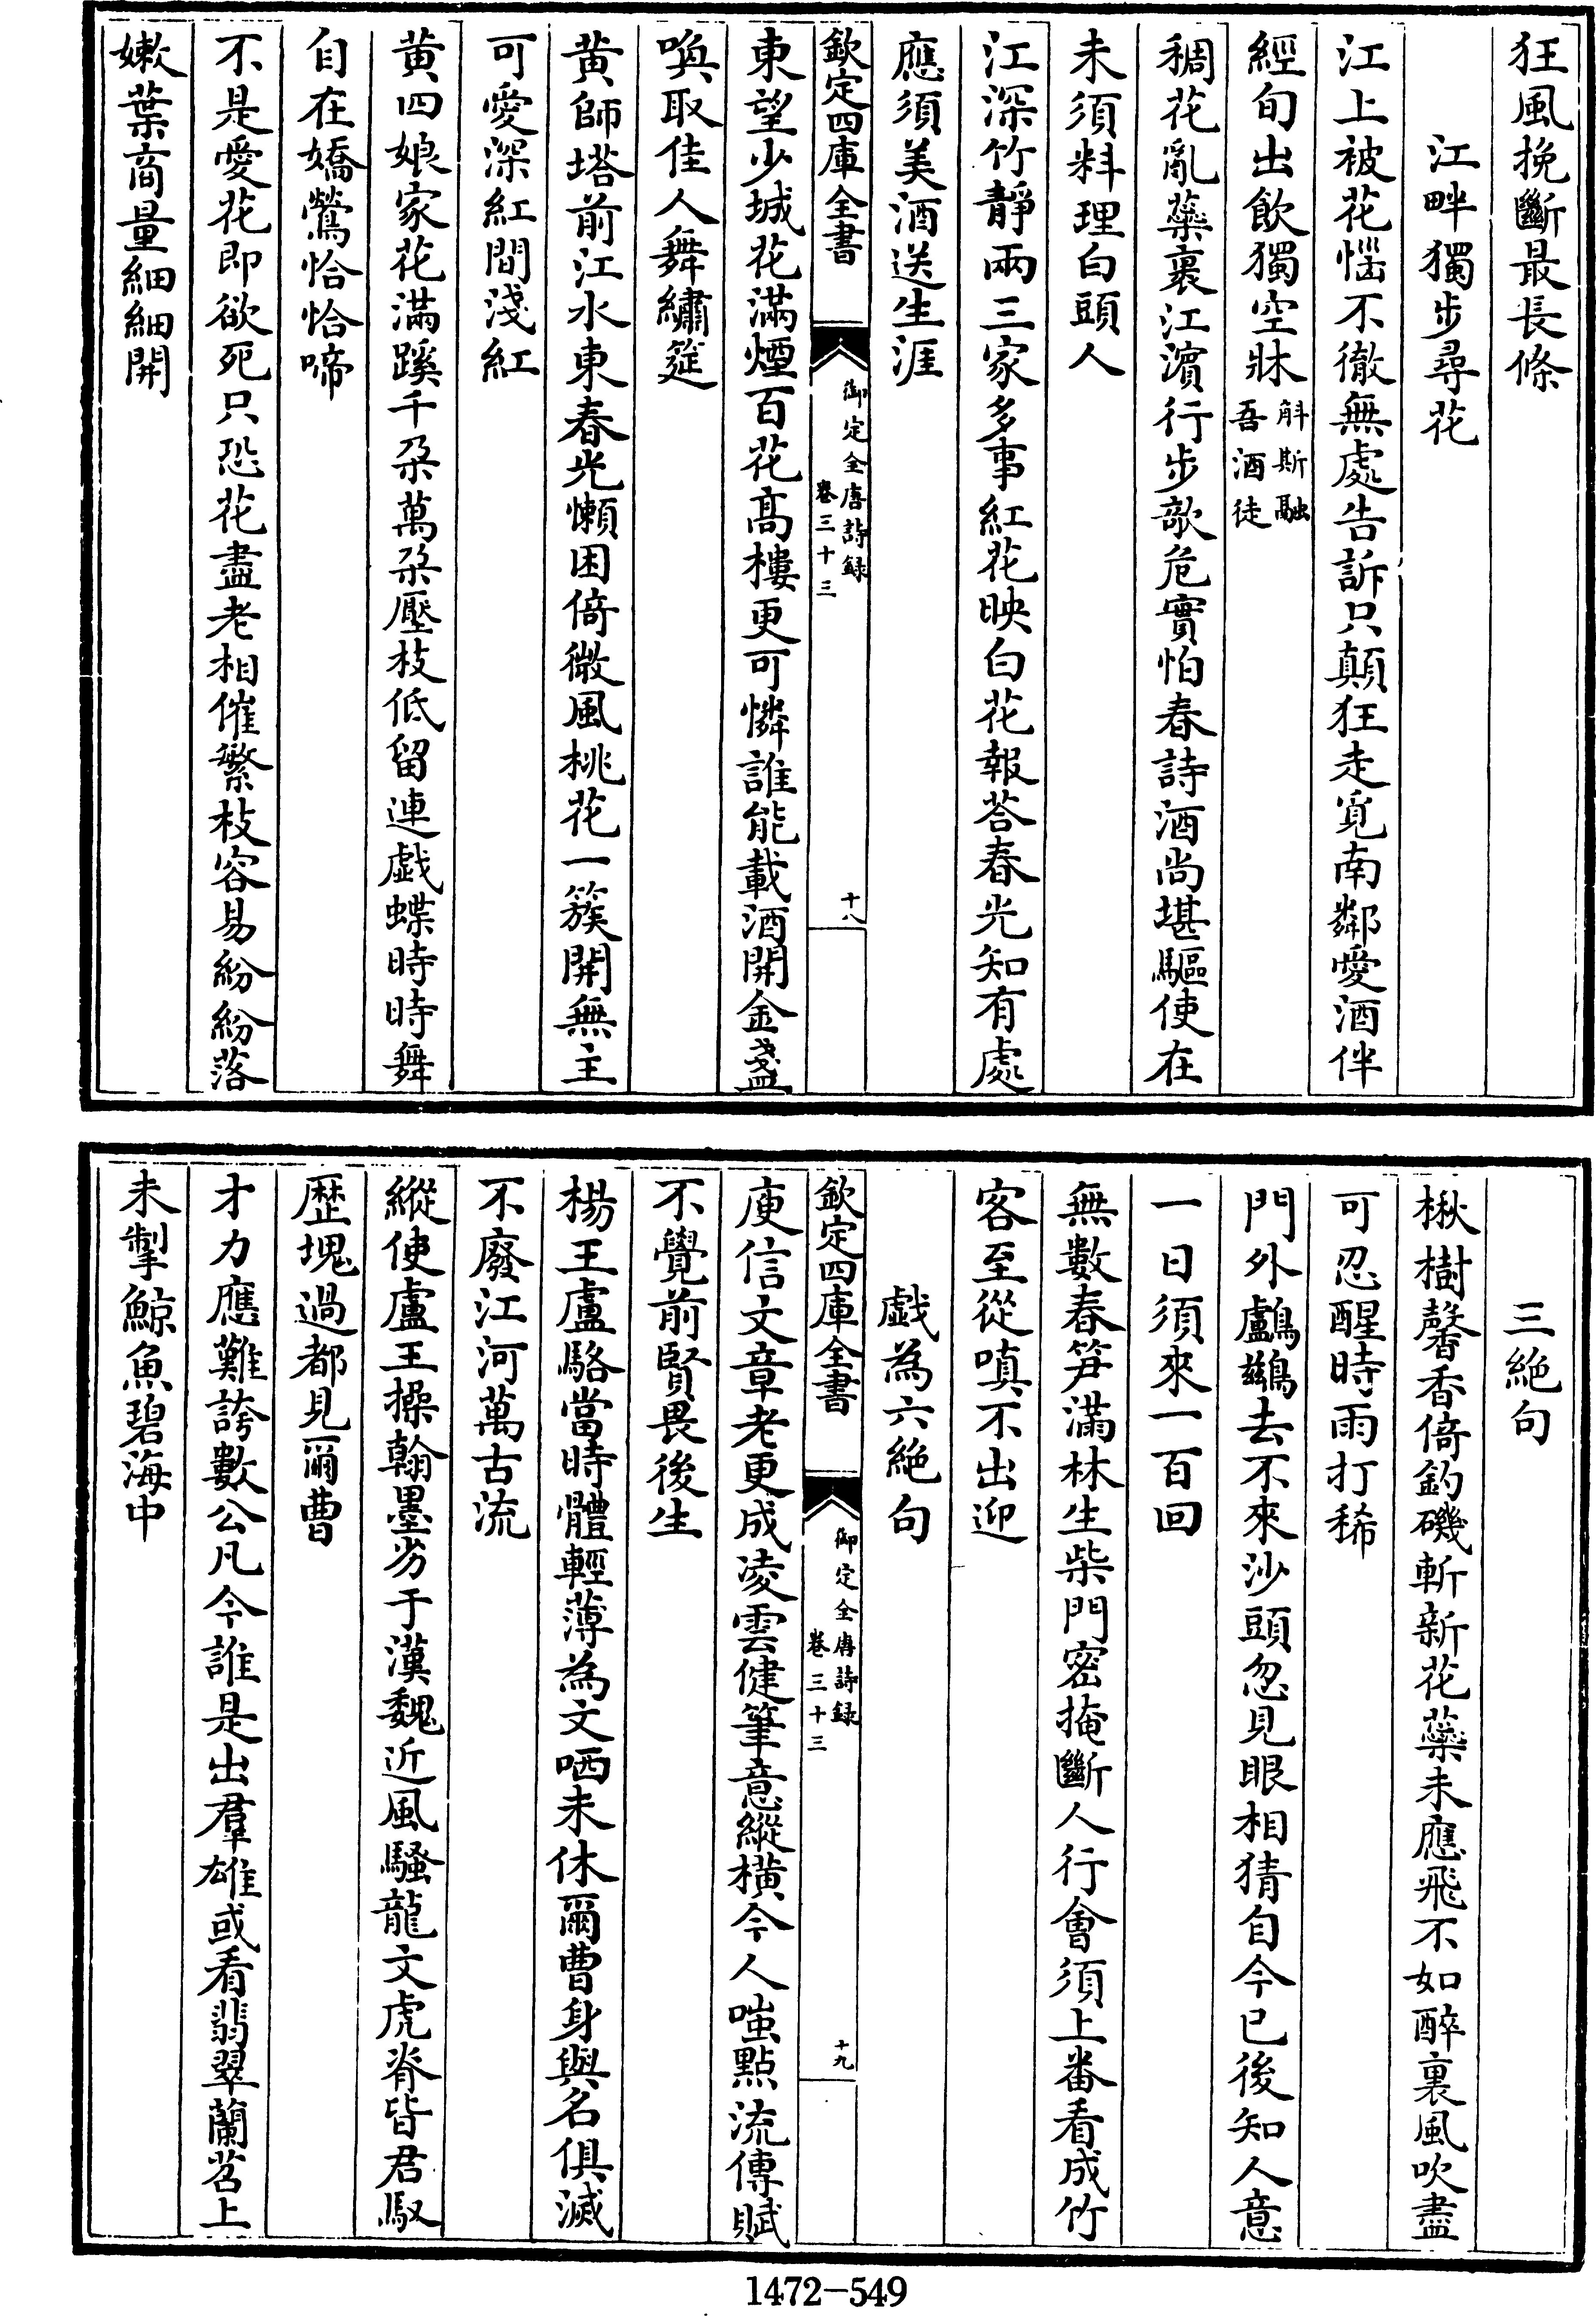 狂風挽斷最長條
江畔獨步尋花
江上被花惱不徹無處告訴只顛狂走覓南鄰愛酒伴
經旬出飲獨空牀斛斯融吾酒徒
稠花亂蘂裹江濵行步欹危實怕春詩酒尚堪驅使在
未須料理白頭人
江深竹靜兩三家多事紅花映白花報荅春光知有處
應須美酒送生涯
欽定四庫全書
御定全唐詩録
卷三十三
十八
東望少城花滿煙百花髙樓更可憐誰能載酒開金盞
喚取佳人舞繡筵
黄師塔前江水東春光懶困倚微風桃花一簇開無主
可愛深紅間淺紅
黄四娘家花滿蹊千朶萬朶壓枝低留連戯蝶時時舞
自在嬌鶯恰恰啼
不是愛花即欲死只恐花盡老相催繁枝容易紛紛落
嫰葉商量細細開
三絶句
楸樹馨香倚釣磯斬新花蘂未應飛不如醉裏風吹盡
可忍醒時雨打稀
門外鸕鷀去不來沙頭忽見眼相猜自今已後知人意
一日須來一百回
無數春笋滿林生柴門宻掩斷人行㑹須上番看成竹
客至從嗔不出迎
戯為六絶句
欽定四庫全書
御定全唐詩録
卷三十三
十九
庾信文章老更成凌雲健筆意縱橫今人嗤點流傳賦
不覺前賢畏後生
楊王盧駱當時體輕薄為文哂未休爾曹身與名俱滅
不廢江河萬古流
縱使盧王操翰墨劣于漢魏近風騷龍文虎脊皆君馭
歴塊過都見爾曹
才力應難誇數公凡今誰是出羣雄或看翡翠蘭苕上
未掣鯨魚碧海中
1472-549